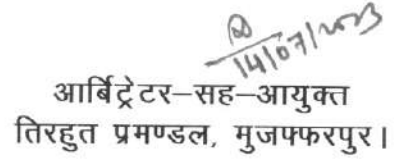 14/07/2023
आर्बिट्रेटर–सह–आयुक्त
तिरहुत प्रमण्डल, मुजफ्फरपुर।